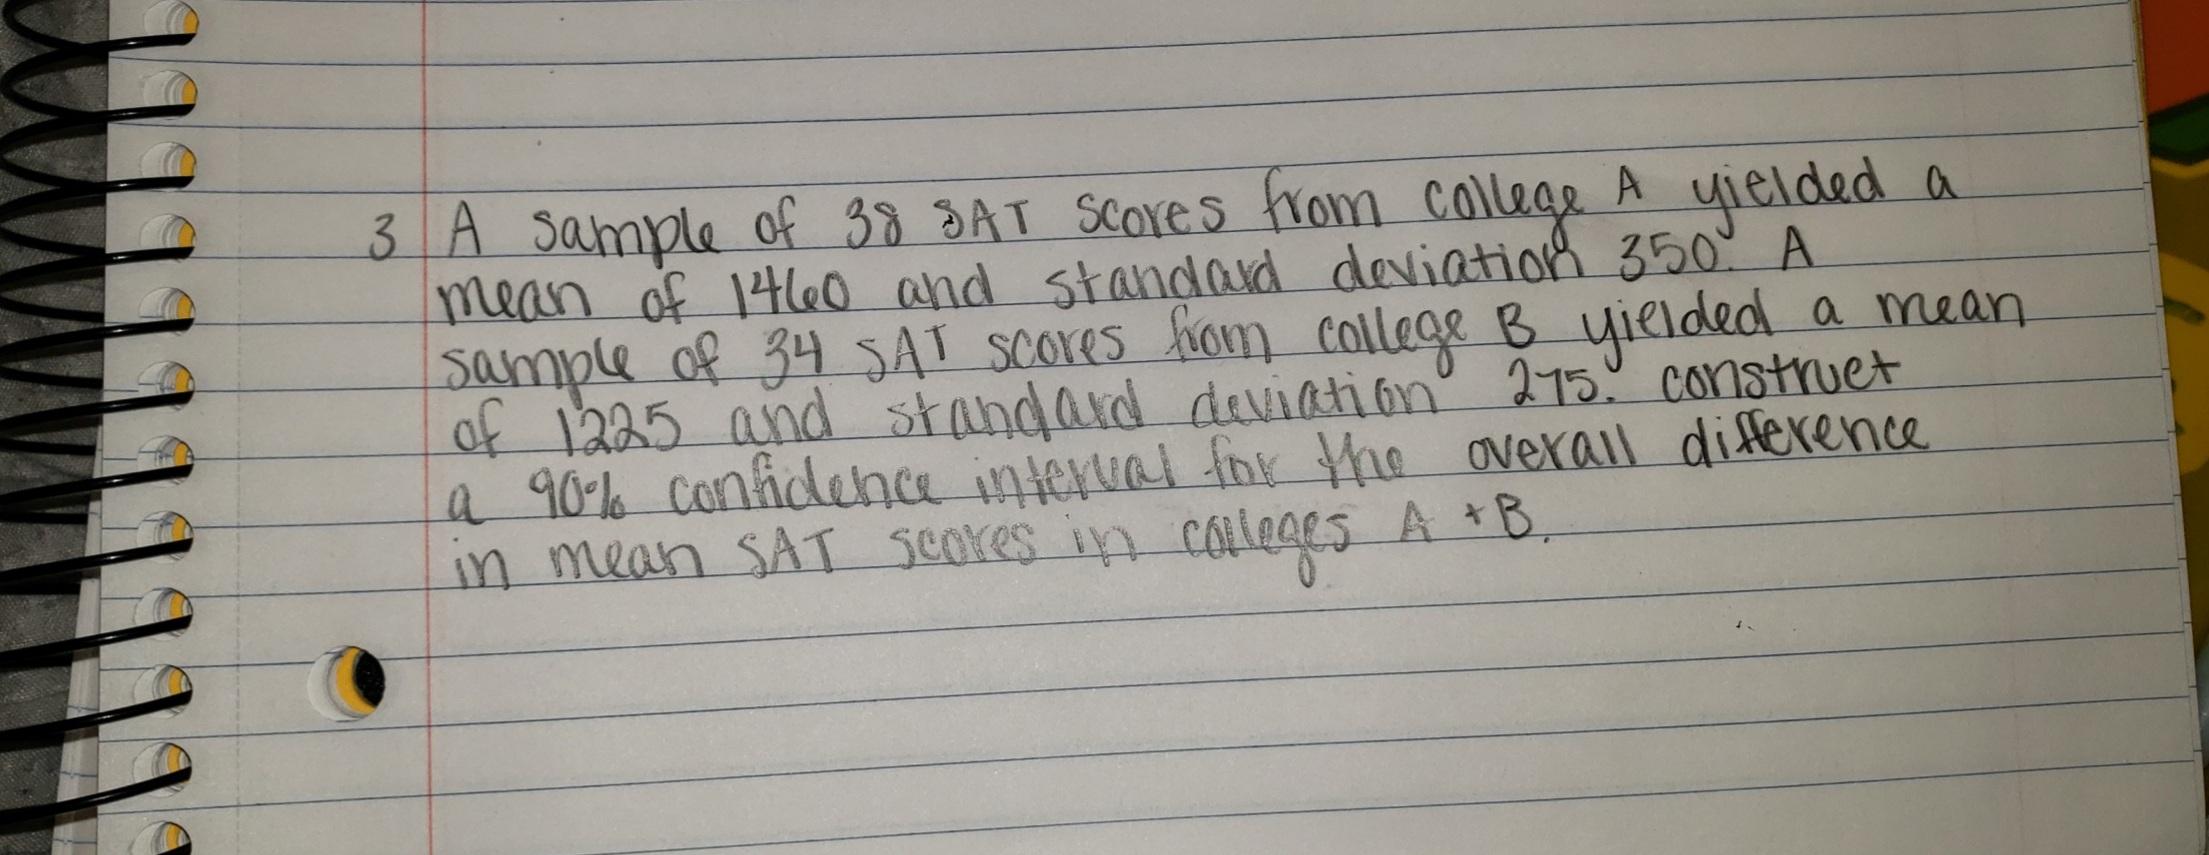 3 A sample of 38 SAT scores from college A yielded a
mean of 1460 and standard deviation 350. A
sample of 34 SAT scores from college B yielded a mean
of 1225 and standard deviation 275. construct
a 90% confidence interval for the overall difference
in mean SAT scores in colleges A + B.